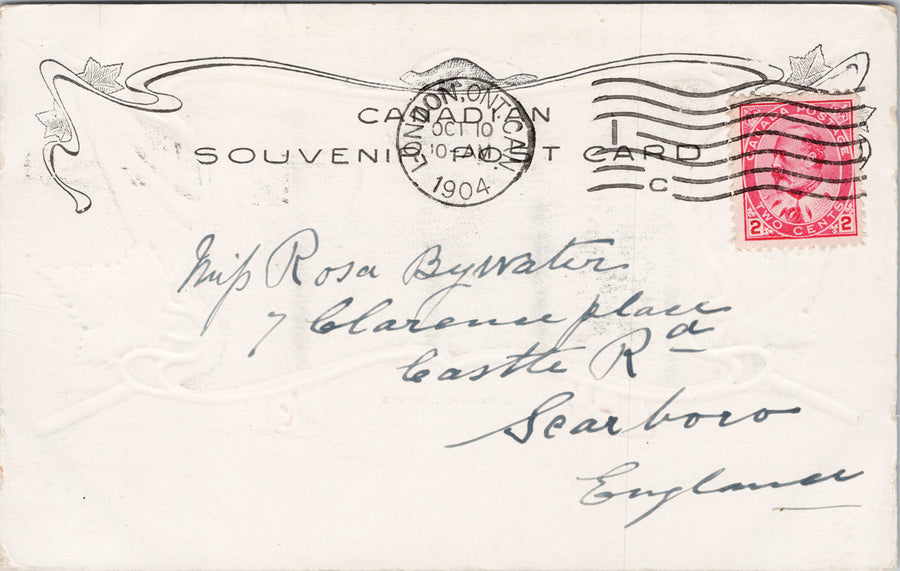 CANADIAN
SOUVENIR POST CARD
LONDON, ONT. CAN.
OCT 10
10-AM
1904
1
C
CANADA POSTAGE
2 TWO CENTS 2
Miss Rosa Bywater
7 Clarence place
Castle Rd
Scarboro
England